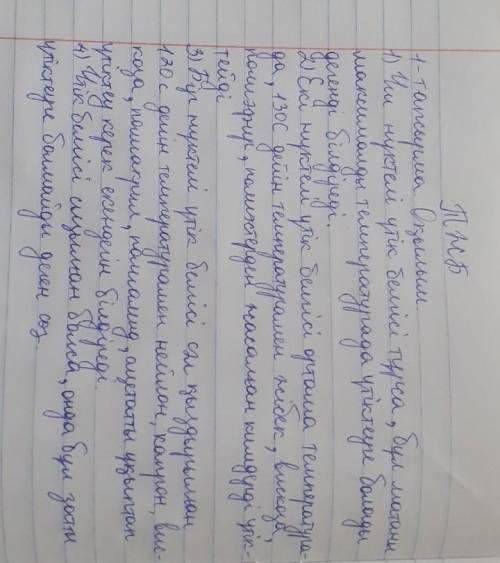 ТЖБ
1-тапсырма Қызылша
1) Үш нүктелі үтік белгісі тұрса, бұл матаны
максималды температурада үтіктеуге болады
дегенді білдіреді.
2) Екі нүктелі үтік белгісі орташа температура-
да, 130С дейін температурамен жібек, вискоза,
полиэфир, полиэстерден жасалған киімдерді үтік-
тейді
3) Бір нүктелі үтік белгісі сәл қыздырылған
130 с дейін температурамен нейлон, капрон, вис-
коза, полиакрил, полиамид, ацетатты ұқыптап
үтіктеу керек екендегін білдіреді
4) Үтік белгісі сызылған болса, онда бұл затты
үтіктеуге болмайды деген сөз.